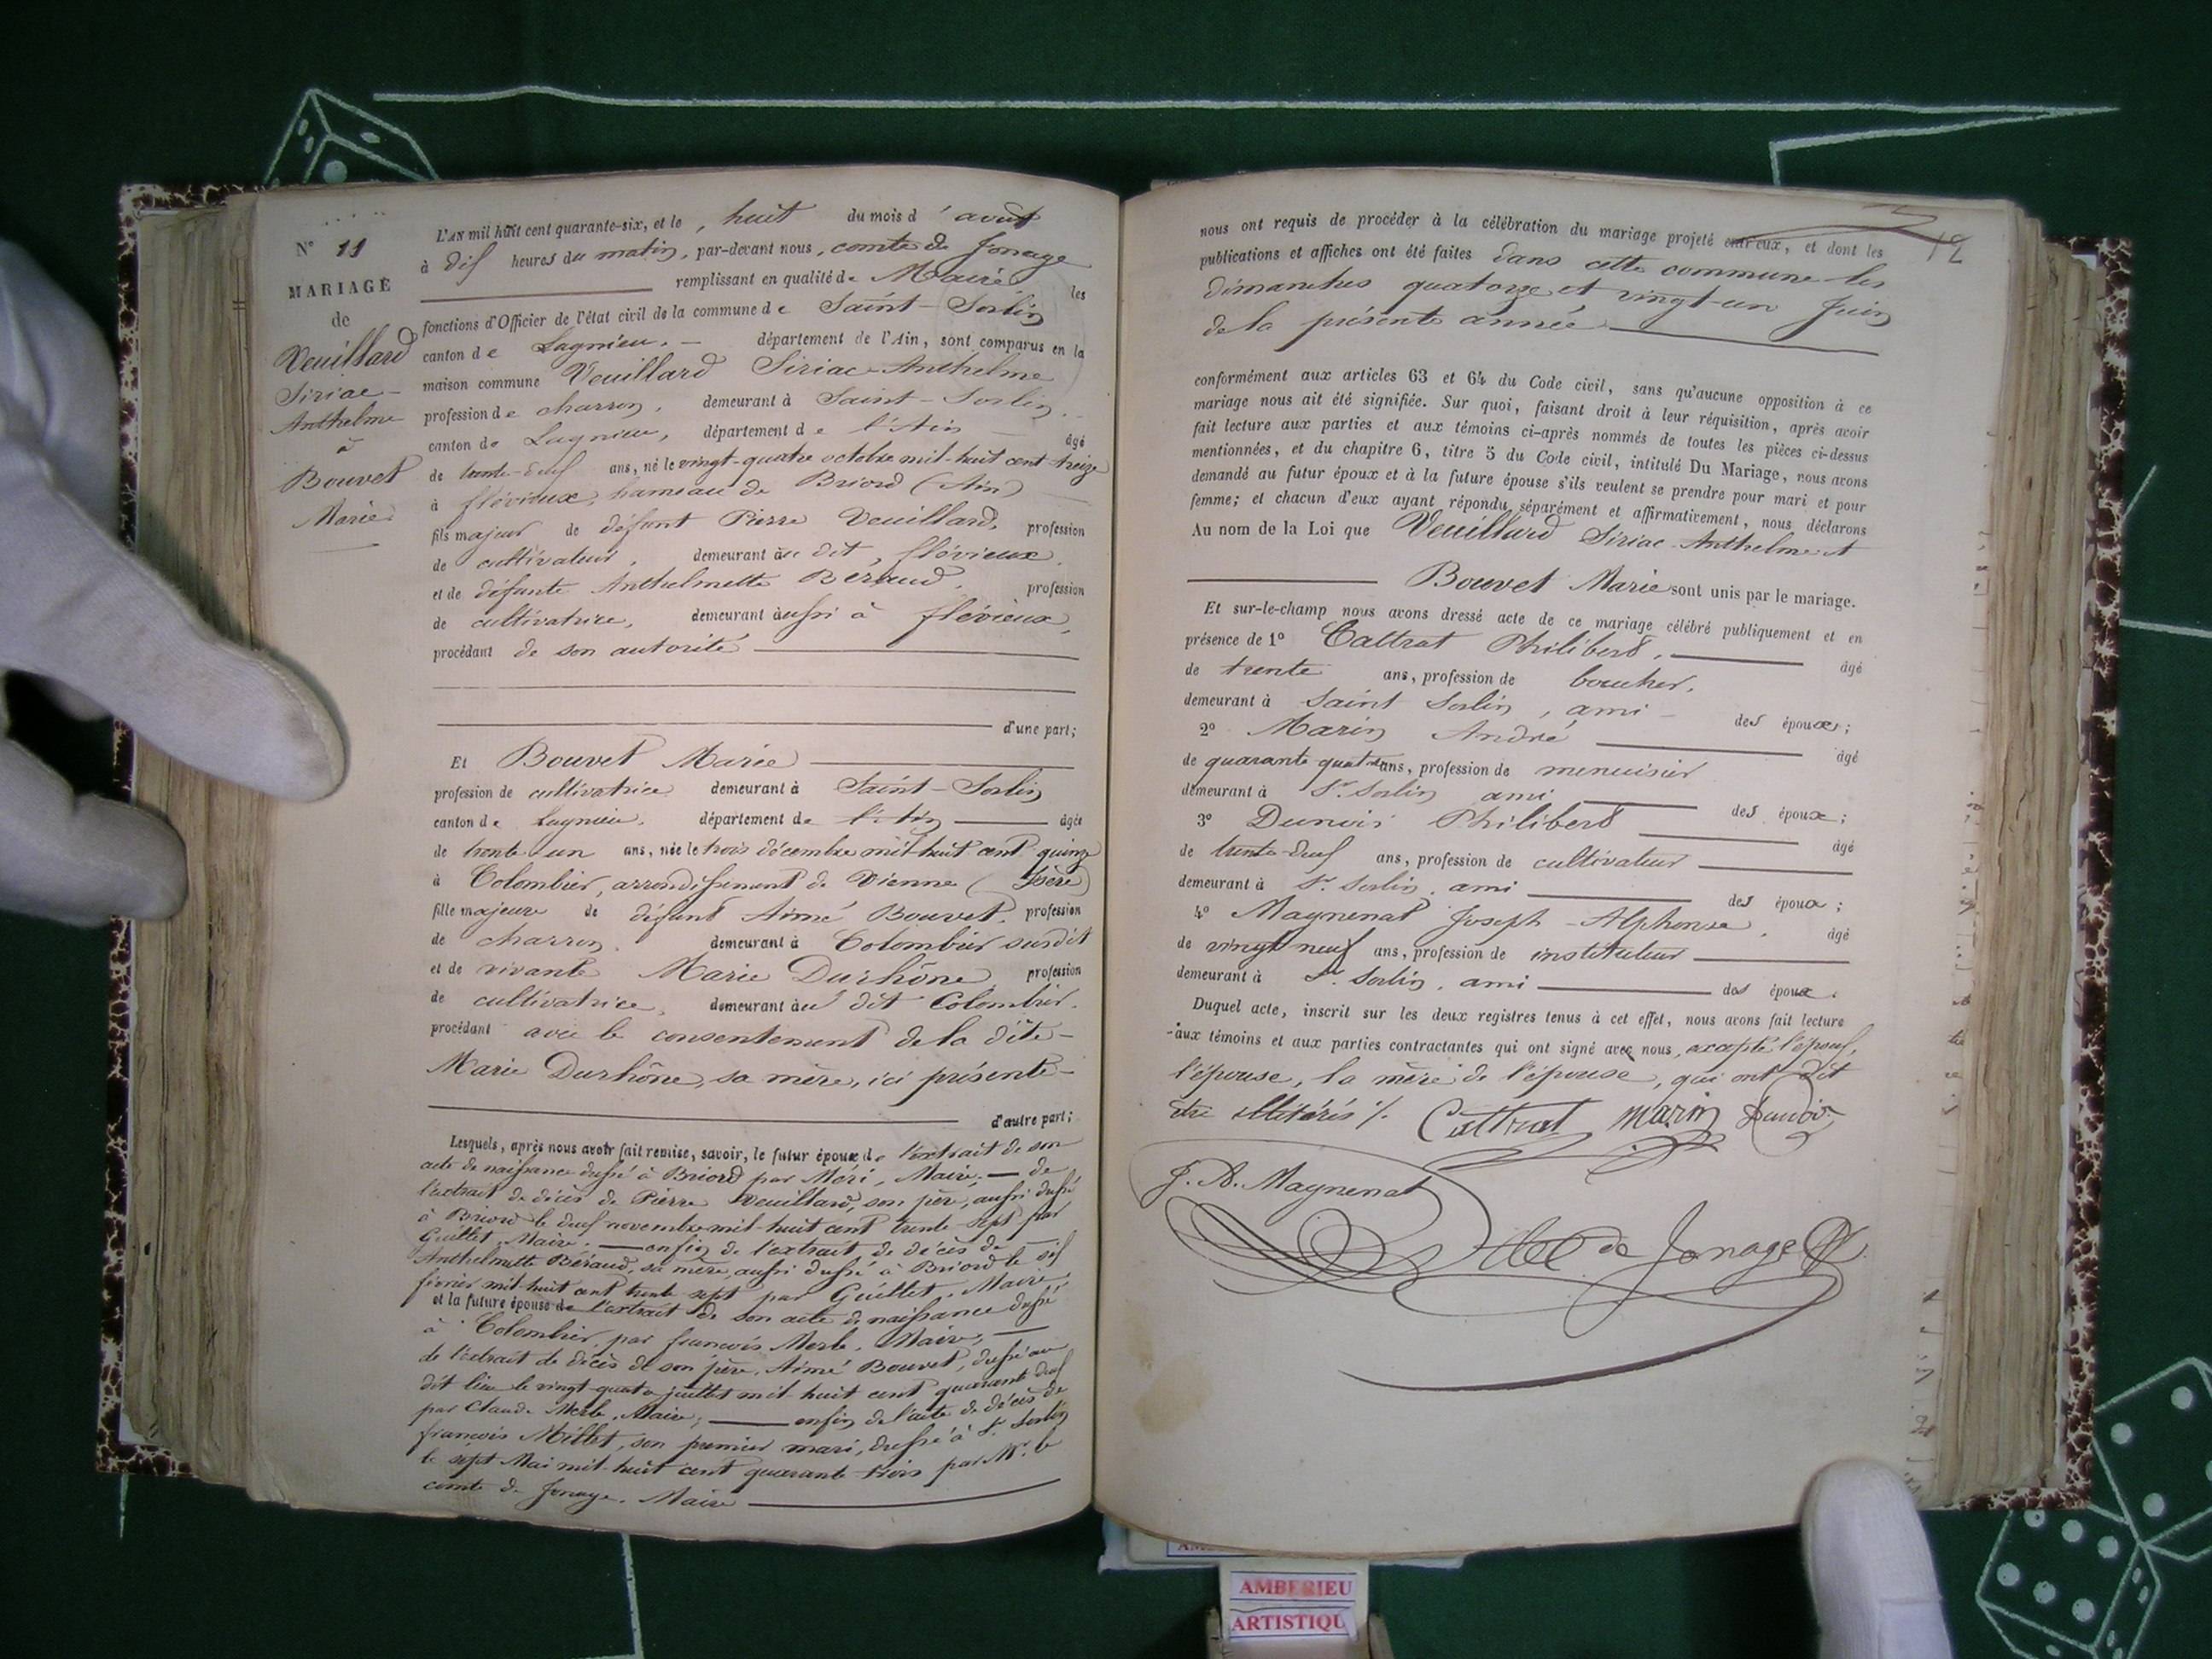 N° 11
MARIAGE
de
Veuillard
Siriac-
Anthelme
à
Bouvet
Marie
L'AN mil huit cent quarante-six, et le, huit du mois d'août
à dix heures du matin, par-devant nous, comte de Jonage
remplissant en qualité de Maire les
fonctions d'Officier de l'état civil de la commune de Saint-Sorlin
canton de Lagnieu. département de l'Ain, sont comparus en la
maison commune Veuillard Siriac-Anthelme
profession de charron, demeurant à Saint-Sorlin,
canton de Lagnieu, département de l'Ain âgé
de trente-deux ans, né le vingt-quatre octobre mil-huit cent-treize
à flévieux, hameau de Briord (Ain)
fils majeur de défunt Pierre Veuillard, profession
de cultivateur, demeurant au dit, flévieux,
et de défunte Anthelmette Béraud, profession
de cultivatrice, demeurant aussi à flévieux,
procédant de son autorité
d'une part;
Et Bouvet Marie
profession de cultivatrice demeurant à Saint-Sorlin
canton de Lagnieu. département de l'Ain âgée
de trente-un ans, née le trois décembre mil huit cent quinze
à Colombier, arrondissement de Vienne (Isère)
fille majeure de défunt Aimé Bouvet, profession
de charron, demeurant à Colombier susdit
et de vivante Marie Durhône, profession
de cultivatrice, demeurant au dit Colombier.
procédant avec le consentement de la dite-
Marie Durhône, sa mère, ici présente-
d'autre part;
Lesquels, après nous avoir fait remise, savoir, le futur époux de l'extrait de son
acte de naissance dressé à Briord par Méri, Maire, — de
l'extrait de décès de Pierre Veuillard, son père, aussi dressé
à Briord le deux novembre mil-huit cent trente-sept par
Guillet, Maire. — enfin de l'extrait de décès de
Anthelmette Béraud, sa mère, aussi dressé à Briord le six
février mil-huit cent trente-sept par Guillet, Maire,
et la future épouse de l'extrait de son acte de naissance dressé
à Colombier par françois Merle, Maire, —
de l'extrait de décès de son père, Aimé Bouvet, dressé au
dit lieu le vingt-quatre juillet mil-huit cent quarante deux
par Claude Merle, Maire; — enfin de l'acte de décès de
françois Millet, son premier mari, dressé à St. Sorlin
le sept Mai mil-huit cent quarante-trois par Mr. le
comte de Jonage. Maire
12
nous ont requis de procéder à la célébration du mariage projeté entr'eux, et dont les
publications et affiches ont été faites dans cette commune les
dimanches quatorze et vingt-un Juin
de la présente année
conformément aux articles 63 et 64 du Code civil, sans qu'aucune opposition à ce
mariage nous ait été signifiée. Sur quoi, faisant droit à leur réquisition, après avoir
fait lecture aux parties et aux témoins ci-après nommés de toutes les pièces ci-dessus
mentionnées, et du chapitre 6, titre 5 du Code civil, intitulé Du Mariage, nous avons
demandé au futur époux et à la future épouse s'ils veulent se prendre pour mari et pour
femme; et chacun d'eux ayant répondu séparément et affirmativement, nous déclarons
Au nom de la Loi que Veuillard Siriac-Anthelme et
Bouvet Marie sont unis par le mariage.
Et sur-le-champ nous avons dressé acte de ce mariage célébré publiquement et en
présence de 1° Cattrat Philibert, âgé
de trente ans, profession de boucher,
demeurant à Saint Sorlin, ami des époux;
2° Marin André âgé
de quarante quatre ans, profession de menuisier
demeurant à St. Sorlin ami des époux;
3° Dunoir Philibert âgé
de trente-deux ans, profession de cultivateur
demeurant à St. Sorlin, ami des époux;
4° Magnenat Joseph-Alphonse, âgé
de vingt neuf ans, profession de instituteur
demeurant à St. Sorlin, ami des époux.
Duquel acte, inscrit sur les deux registres tenus à cet effet, nous avons fait lecture
aux témoins et aux parties contractantes qui ont signé avec nous, excepté l'époux,
l'épouse, la mère de l'épouse, qui ont dit
être illitérés ./.
Cattrat marin Dunoir
J. A. Magnenat
de Jonage
AMBERIEU
ARTISTIQU